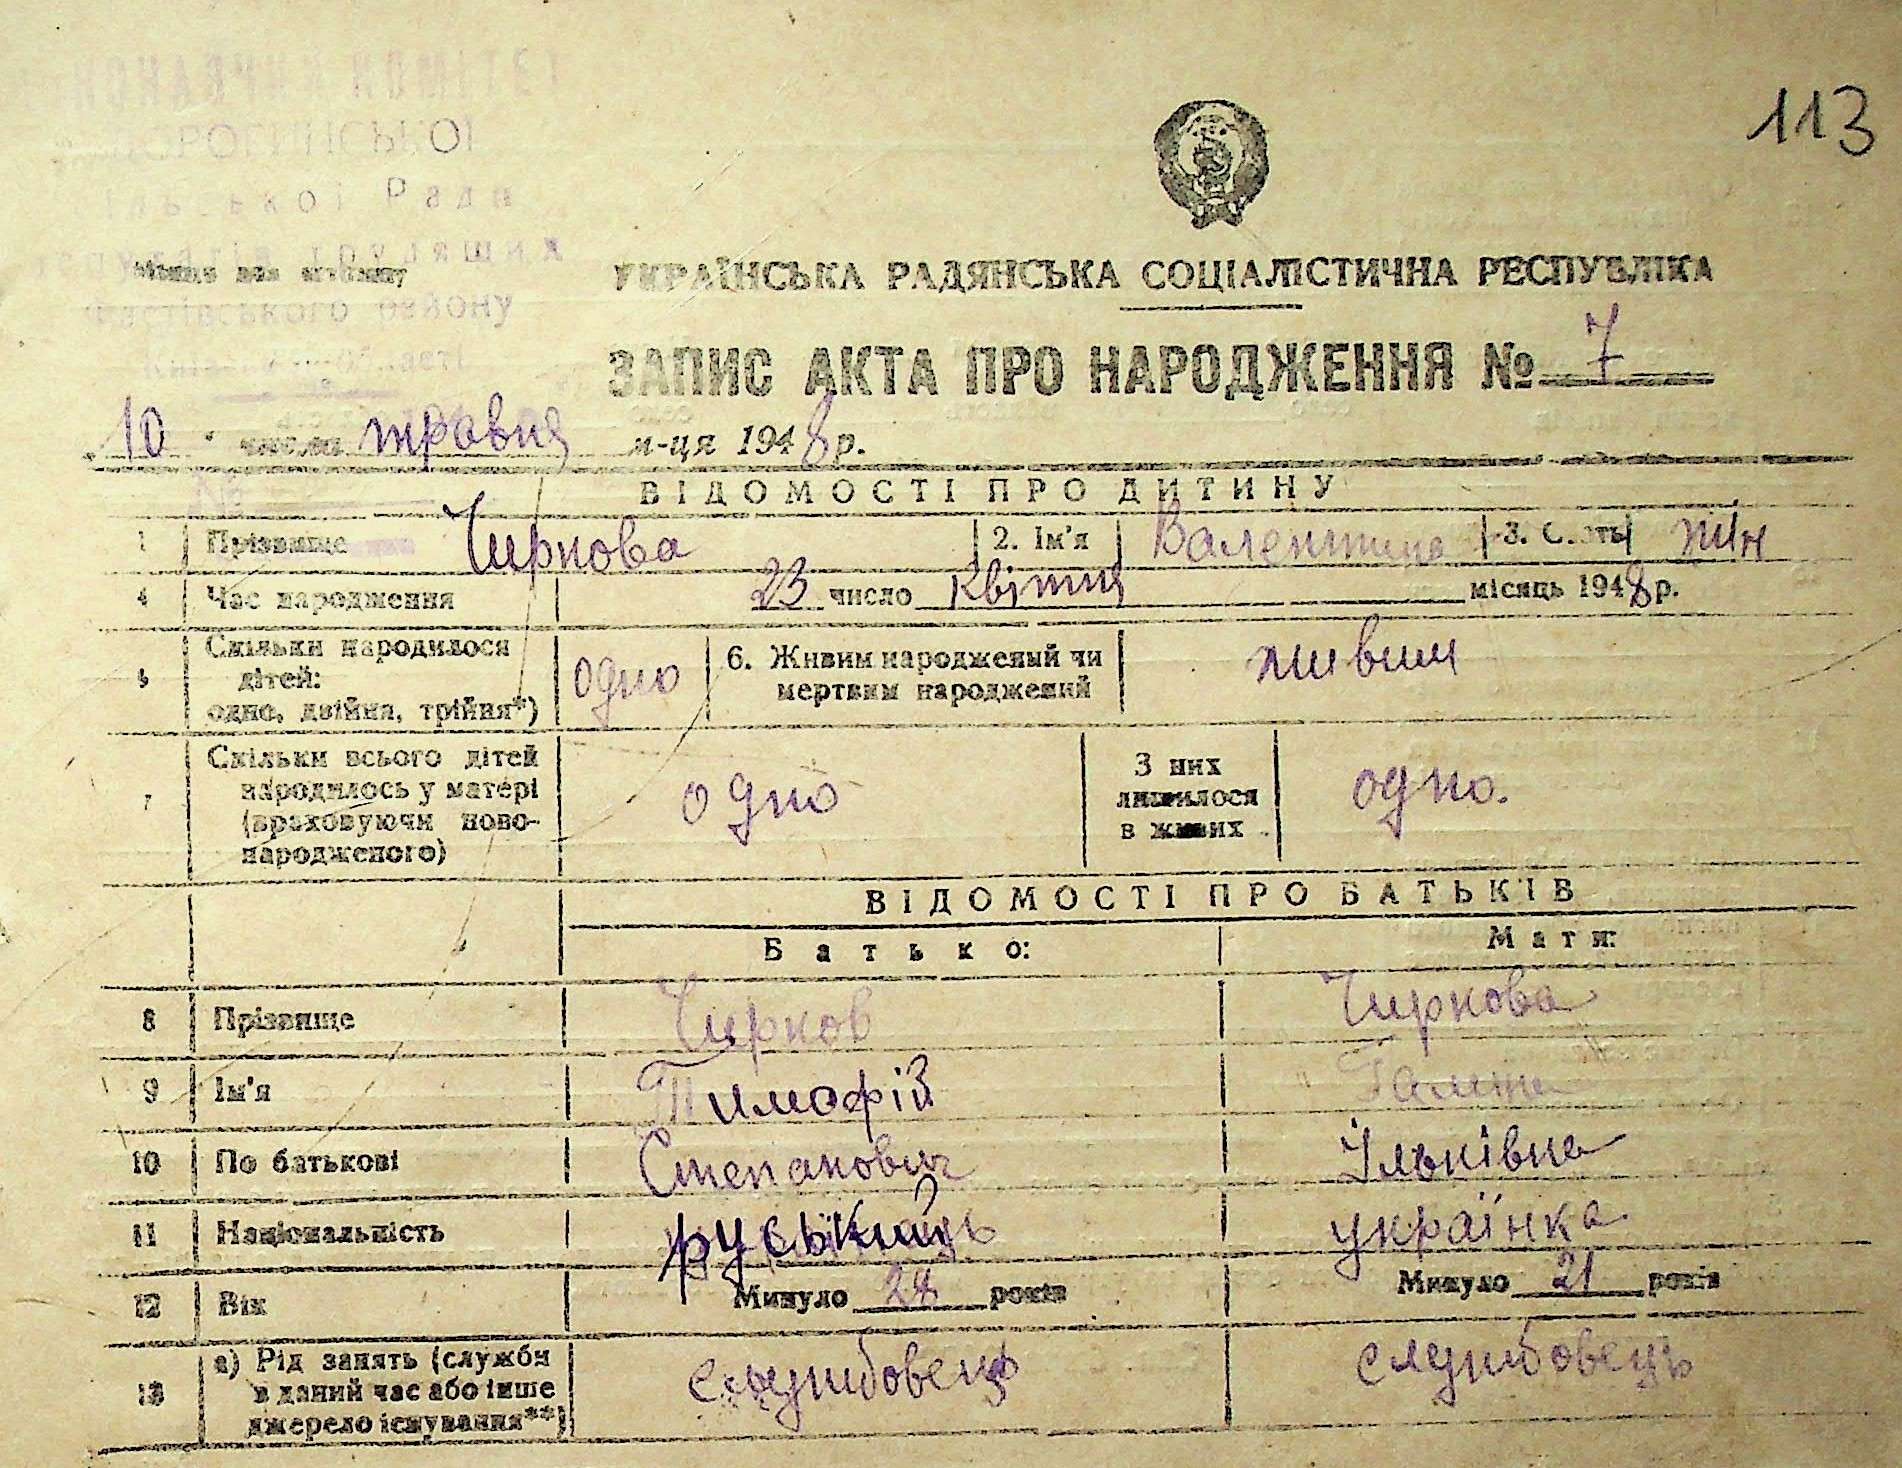 113
ВИКОНАВЧИЙ КОМІТЕТ
ільської Ради
депутатів трудящих
Місце для штампу
Фастівського району
УКРАЇНСЬКА РАДЯНСЬКА СОЦІАЛІСТИЧНА РЕСПУБЛІКА
ЗАПИС АКТА ПРО НАРОДЖЕННЯ № 7
10 числа травня м-ця 1948 р.
ВІДОМОСТІ ПРО ДИТИНУ
1 Прізвище Чиркова 2. Ім'я Валентина 3. Стать жін
4 Час народження 23 число квітня місяць 1948 р.
5 Скільки народилося дітей: одно, двійня, трійня*) одно 6. Живим народжений чи мертвим народжений живим
7 Скільки всього дітей народилось у матері (враховуючи ново-народженого) одно З них лишилося в живих одно.
ВІДОМОСТІ ПРО БАТЬКІВ
Батько: Мати:
8 Прізвище Чирков Чиркова
9 Ім'я Тимофій
10 По батькові Степанович Ільківна
11 Національність руський українка
12 Вік Минуло 28 років Минуло 21 років
13 а) Рід занять (служби в даний час або інше джерело існування**) службовець службовець